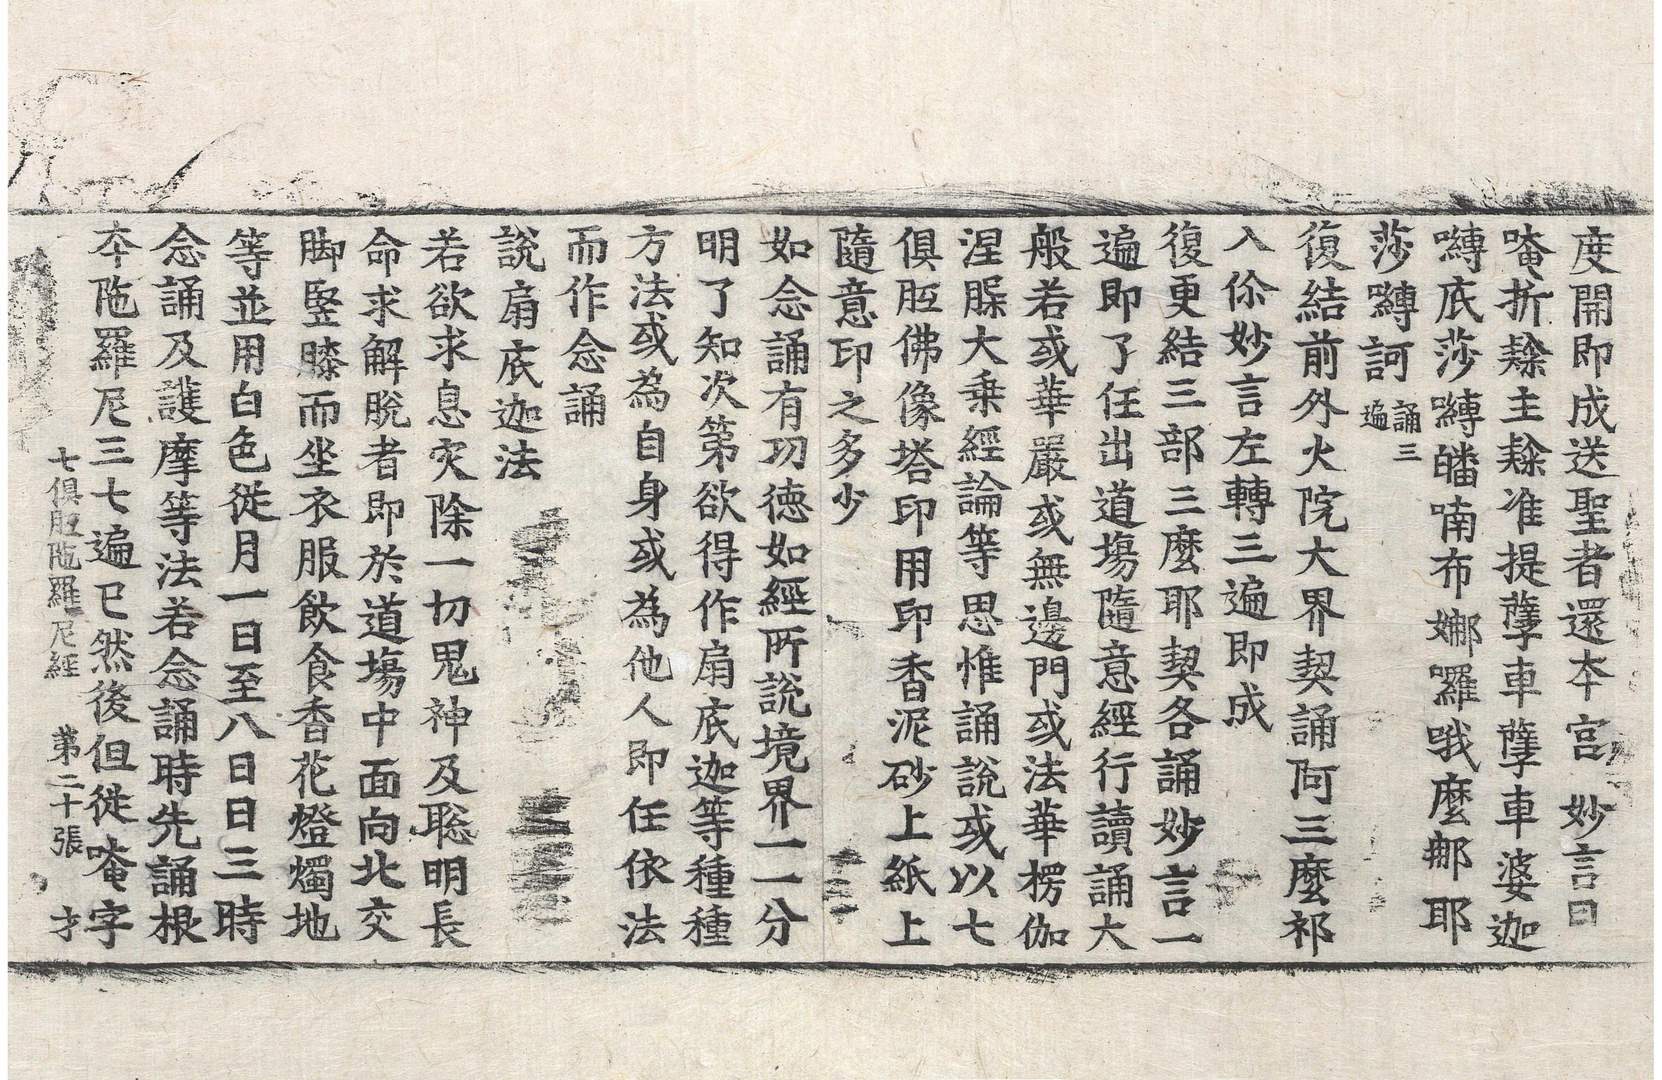 度開即成送聖者還本宮妙言曰
唵折隸主隸准提孽車孽車婆迦
嚩底莎嚩皤喃布娜囉哦麼那耶
莎嚩訶誦三遍
復結前外火院大界契誦阿三麼祁
入你妙言左轉三遍即成
復更結三部三麼耶契各誦妙言一
遍即了任出道場隨意經行讀誦大
般若或華嚴或無邊門或法華楞伽
涅槃大乗經論等思惟誦說或以七
俱胝佛像塔印用印香泥砂上紙上
隨意印之多少
如念誦有功德如經所說境界一一分
明了知次第欲得作扇底迦等種種
方法或為自身或為他人即任依法
而作念誦
說扇底迦法
若欲求息灾除一切鬼神及聡明長
命求解脫者即於道場中面向北交
脚竪膝而坐衣服飲食香花燈燭地
等並用白色從月一日至八日日三時
念誦及護摩等法若念誦時先誦根
本陁羅尼三七遍已然後但從唵字
七俱胝陁羅尼經 第二十張 才